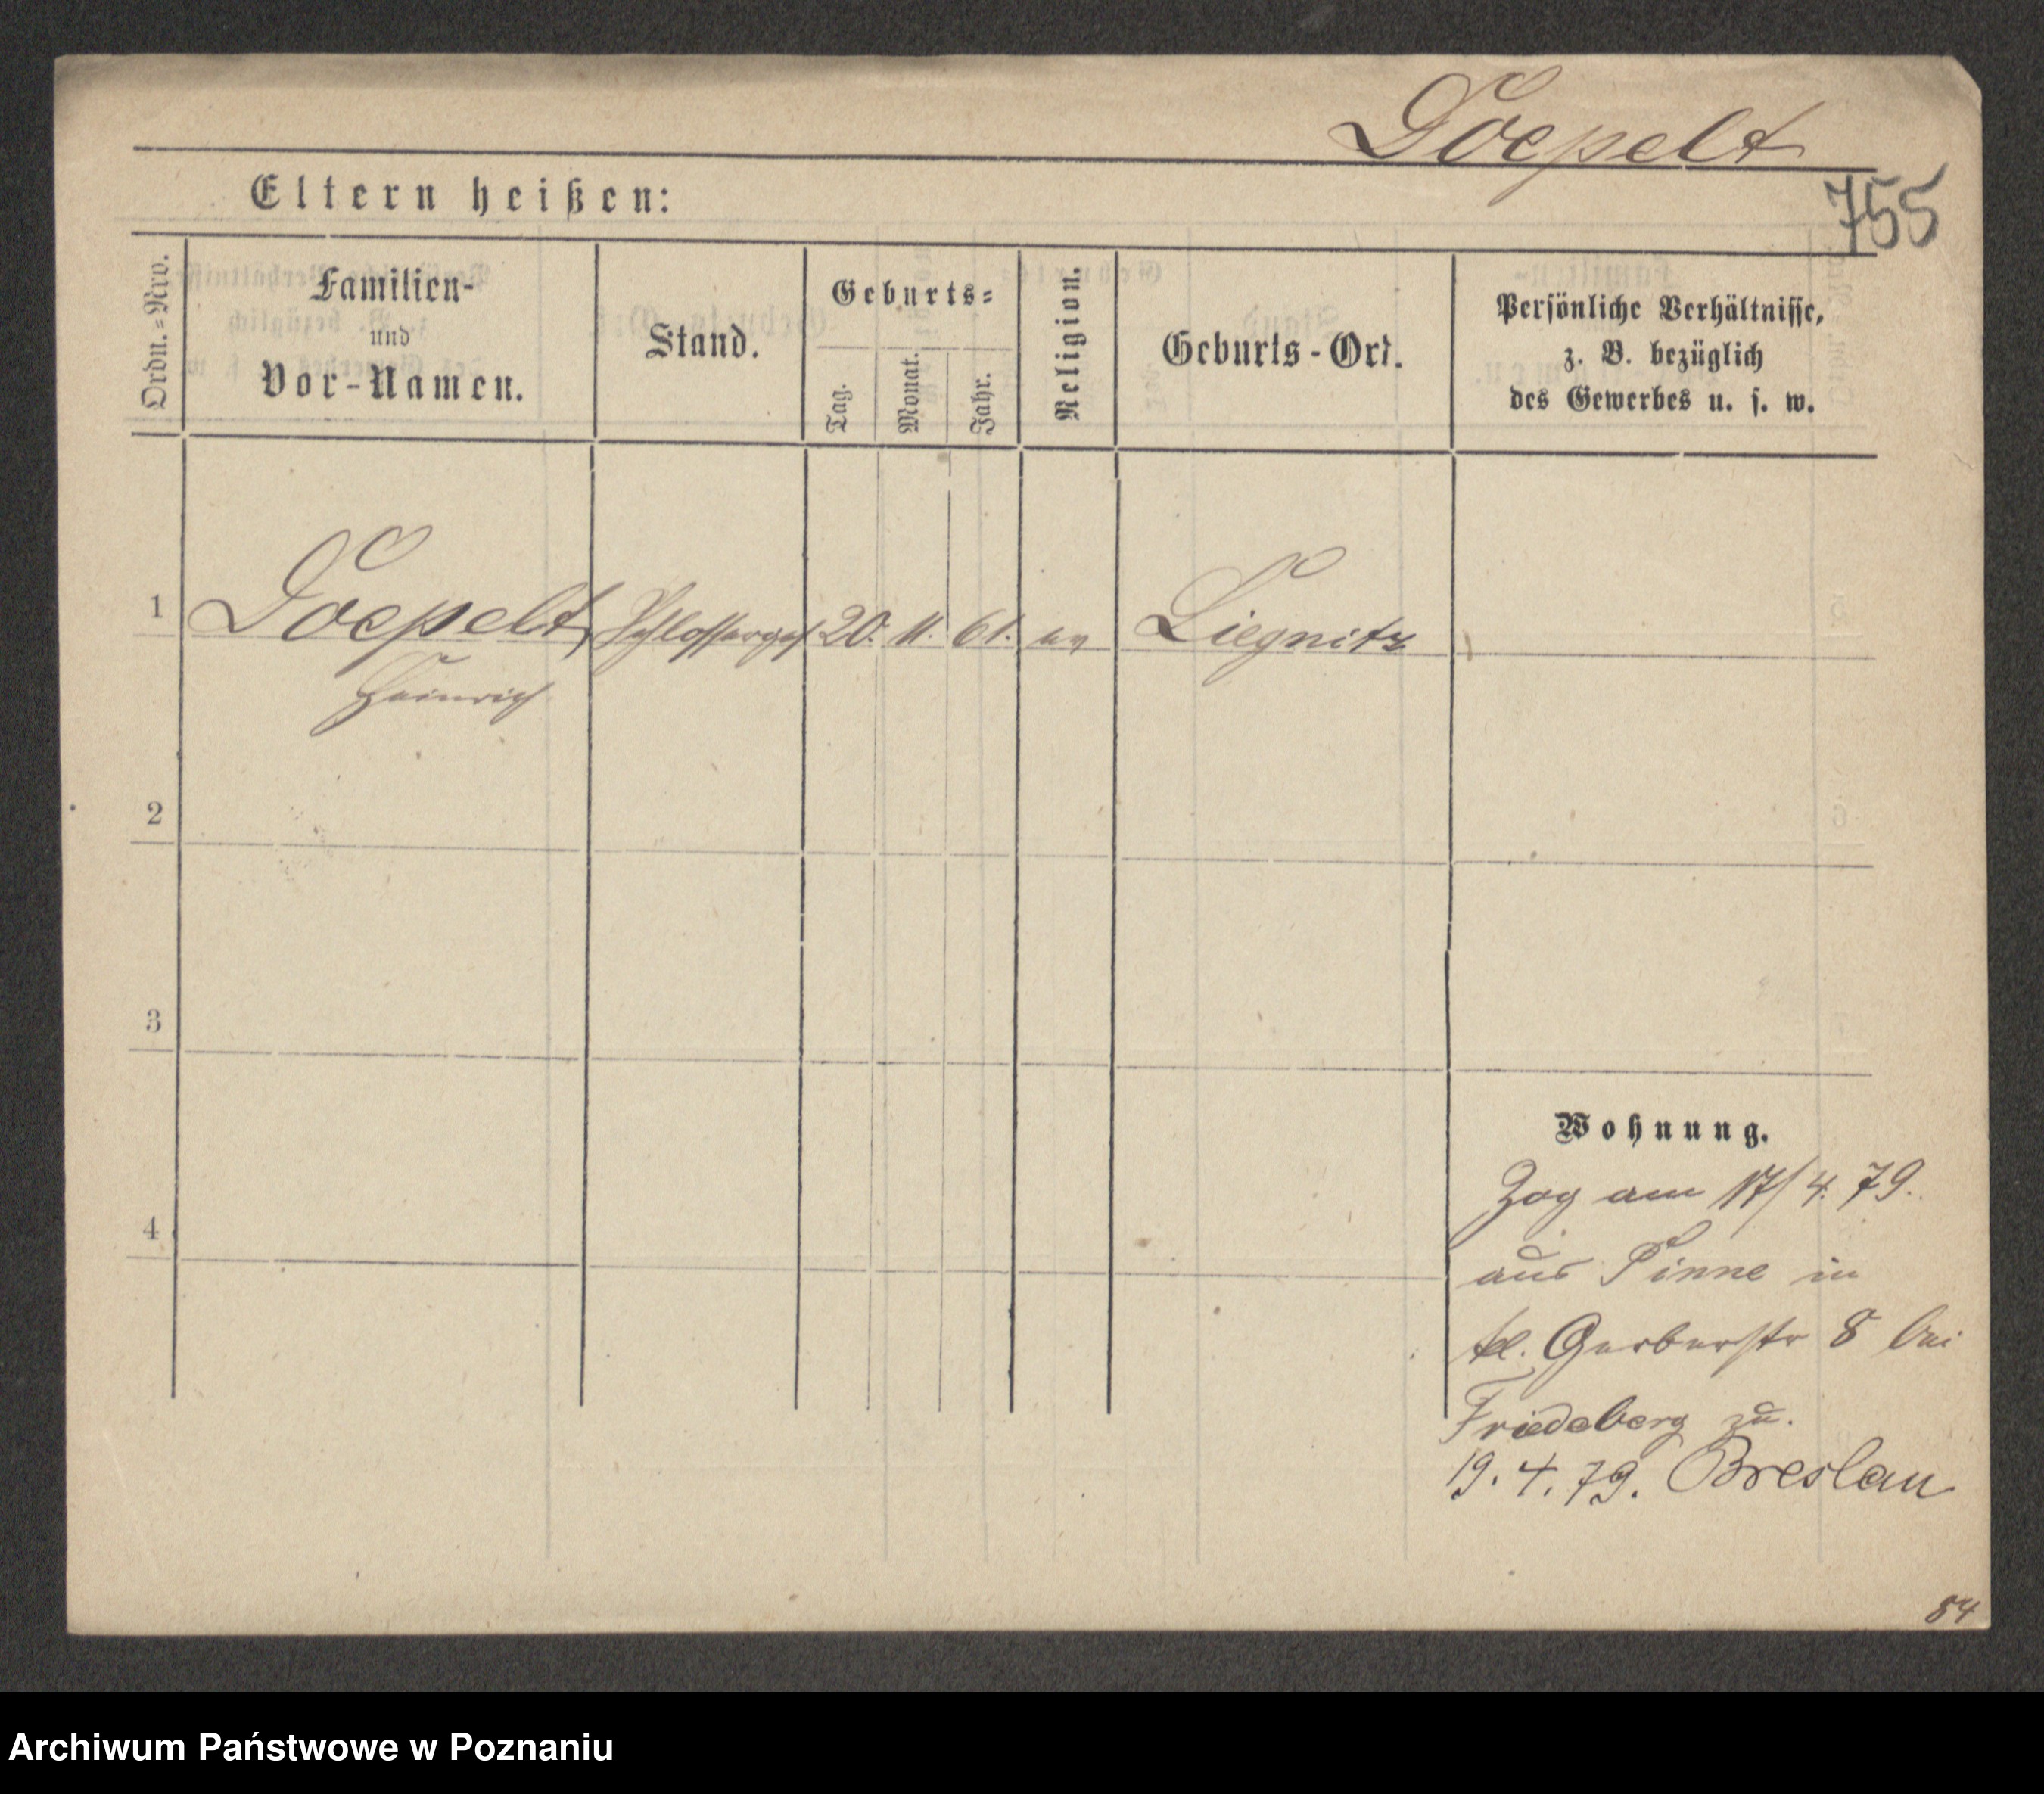 Doepelt
755
Eltern heißen:
Ordn.=Nro.
Familien-
und
Vor-Namen.
Stand.
Geburts=
Tag.
Monat.
Jahr.
Religion.
Geburts-Ort.
Persönliche Verhältnisse,
z. B. bezüglich
des Gewerbes u. s. w.
1 Doepelt Schlosserges 20. 11. 61. ev Liegnitz
Heinrich
2
3
4
Wohnung.
Zog am 17/4. 79.
aus Pinne in
kl. Gerberstr 8 bei
Friedeberg zu.
19. 4. 79. Breslau
84
Archiwum Państwowe w Poznaniu